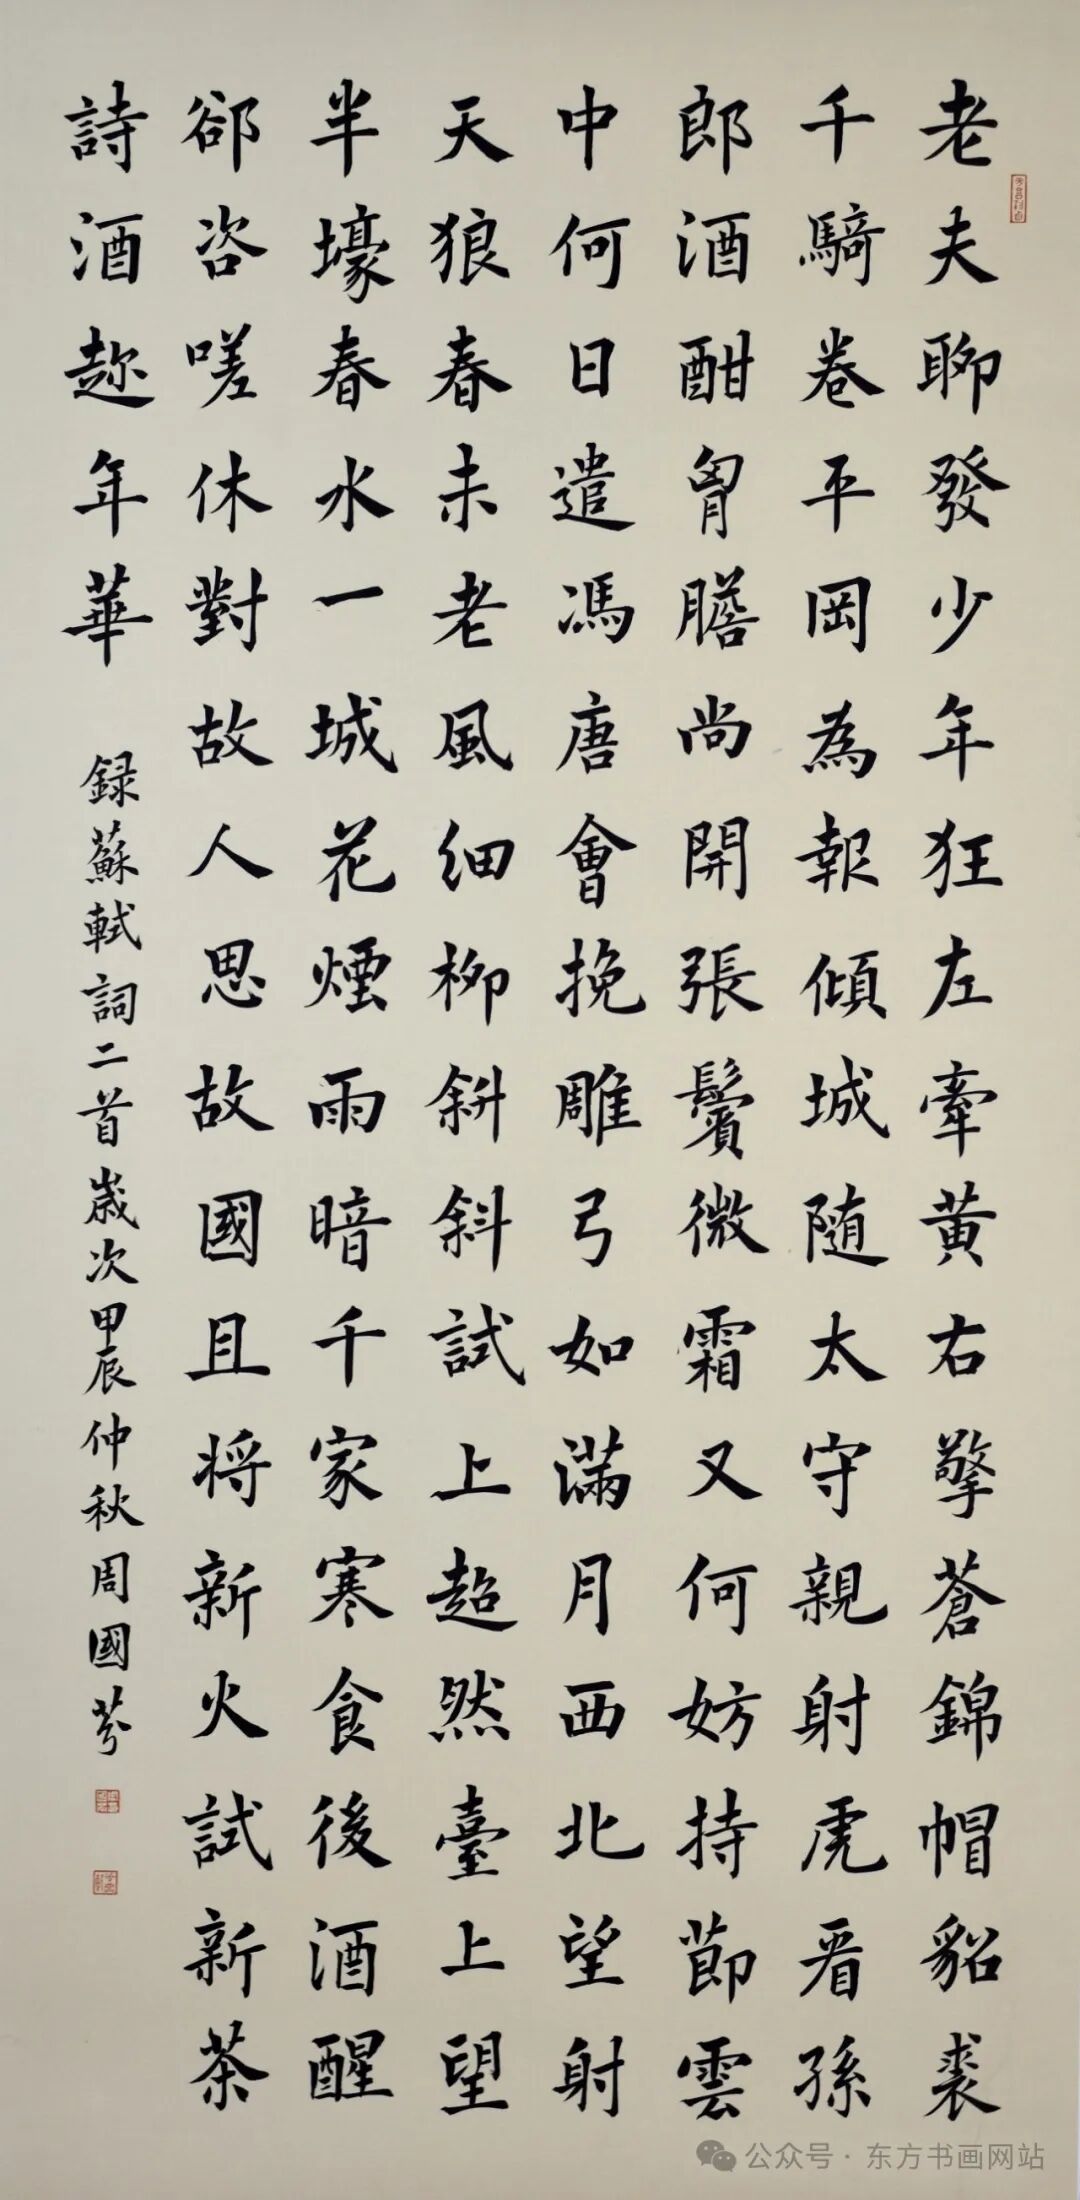 老夫聊發少年狂左牽黄右擎蒼錦帽貂裘
千騎卷平岡為報傾城随太守親射虎看孫
郎酒酣胷膽尚開張鬢微霜又何妨持節雲
中何日遣馮唐會挽雕弓如滿月西北望射
天狼春未老風細柳斜斜試上超然臺上望
半壕春水一城花煙雨暗千家寒食後酒醒
卻咨嗟休對故人思故國且将新火試新茶
詩酒趂年華
録蘇軾詞二首歲次甲辰仲秋周國芬
公众号·东方书画网站